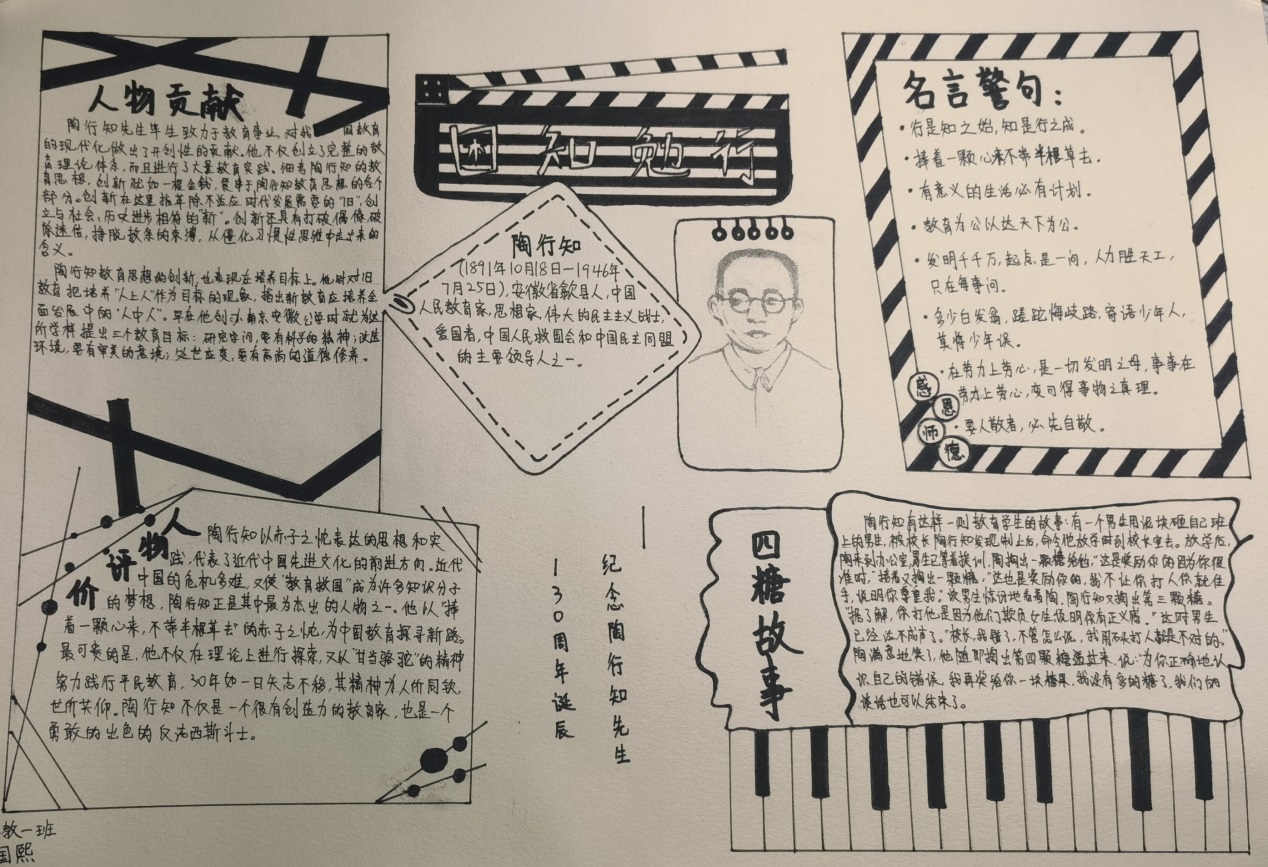 人物贡献
陶行知先生毕生致力于教育事业,对我国教育
的现代化做出了开创性的贡献。他不仅创立了完整的教
育理论体系,而且进行了大量教育实践。细看陶行知的教
育思想,创新犹如一根金线,贯串于陶行知教育思想的各个
部分。创新在这里指革除不适应时代发展需要的"旧",创
立与社会,历史进步相符的"新"。创新还具有打破偶像,破
除迷信,挣脱教条的束缚,从僵化习惯性思维中走出来的
含义。
陶行知教育思想的创新,也表现在培养目标上。他针对旧
教育把培养"人上人"作为目标的现象,指出新教育应培养全
面发展中的"人中人"。早在他创办南京安徽公学时就为这
所学样提出三个教育目标:研究学问,要有科学的精神;改造
环境,要有审美的意境;处世应变,要有高尚的道德修养。
困知勉行
陶行知
(1891年10月18日—1946年
7月25日),安徽省歙县人,中国
人民教育家,思想家,伟大的民主主义战士,
爱国者,中国人民救国会和中国民主同盟
的主要领导人之一。
名言警句:
·行是知之始,知是行之成。
·捧着一颗心来不带半根草去。
·有意义的生活必有计划。
·教育为公以达天下为公。
·发明千千万,起点是一问,人力胜天工,
只在每事问。
·多少白发翁,蹉跎悔歧路,寄语少年人,
莫将少年误。
·在劳力上劳心,是一切发明之母,事事在
劳力上劳心,变可得事物之真理。
·要人敬者,必先自敬。
感恩师德
人物评价
陶行知以赤子之忱表达的思想和实
践,代表了近代中国先进文化的前进方向。近代
中国的危机多难,又使"教育救国"成为许多知识分子
的梦想,陶行知正是其中最为杰出的人物之一。他以"捧
着一颗心来,不带半根草去"的赤子之忱,为中国教育探寻新路。
最可贵的是,他不仅在理论上进行探索,又以"甘当骆驼"的精神
努力践行平民教育,30年如一日矢志不移,其精神为人所同钦,
世所共仰。陶行知不仅是一个很有创造力的教育家,也是一个
勇敢的出色的反法西斯斗士。
纪念陶行知先生
130周年诞辰
四糖故事
陶行知有这样一则教育学生的故事:有一个男生用泥块砸自己班
上的男生,被校长陶行知发现制止后,命令他放学时到校长室去。放学后,
陶来到办公室,男生已等着挨训,陶掏出一颗糖给他,"这是奖励你的因为你很
准时,"接着又掏出一颗糖,"这也是奖励你的,我不让你打人你就住
手,说明你尊重我;"该男生惊讶地看着陶,陶行知又掏出第三颗糖。
"据了解,你打他是因为他们欺负女生说明你有正义感。"这时男生
已经泣不成声了。"校长,我错了,不管怎么说,我用不以打人都是不对的。"
陶满意地笑了,他随即掏出第四颗糖递过来,说:"为你正确地认
识自己的错误,我再奖给你一块糖果,我没有多的糖了,我们的
谈话也可以结束了。
教一班
国熙